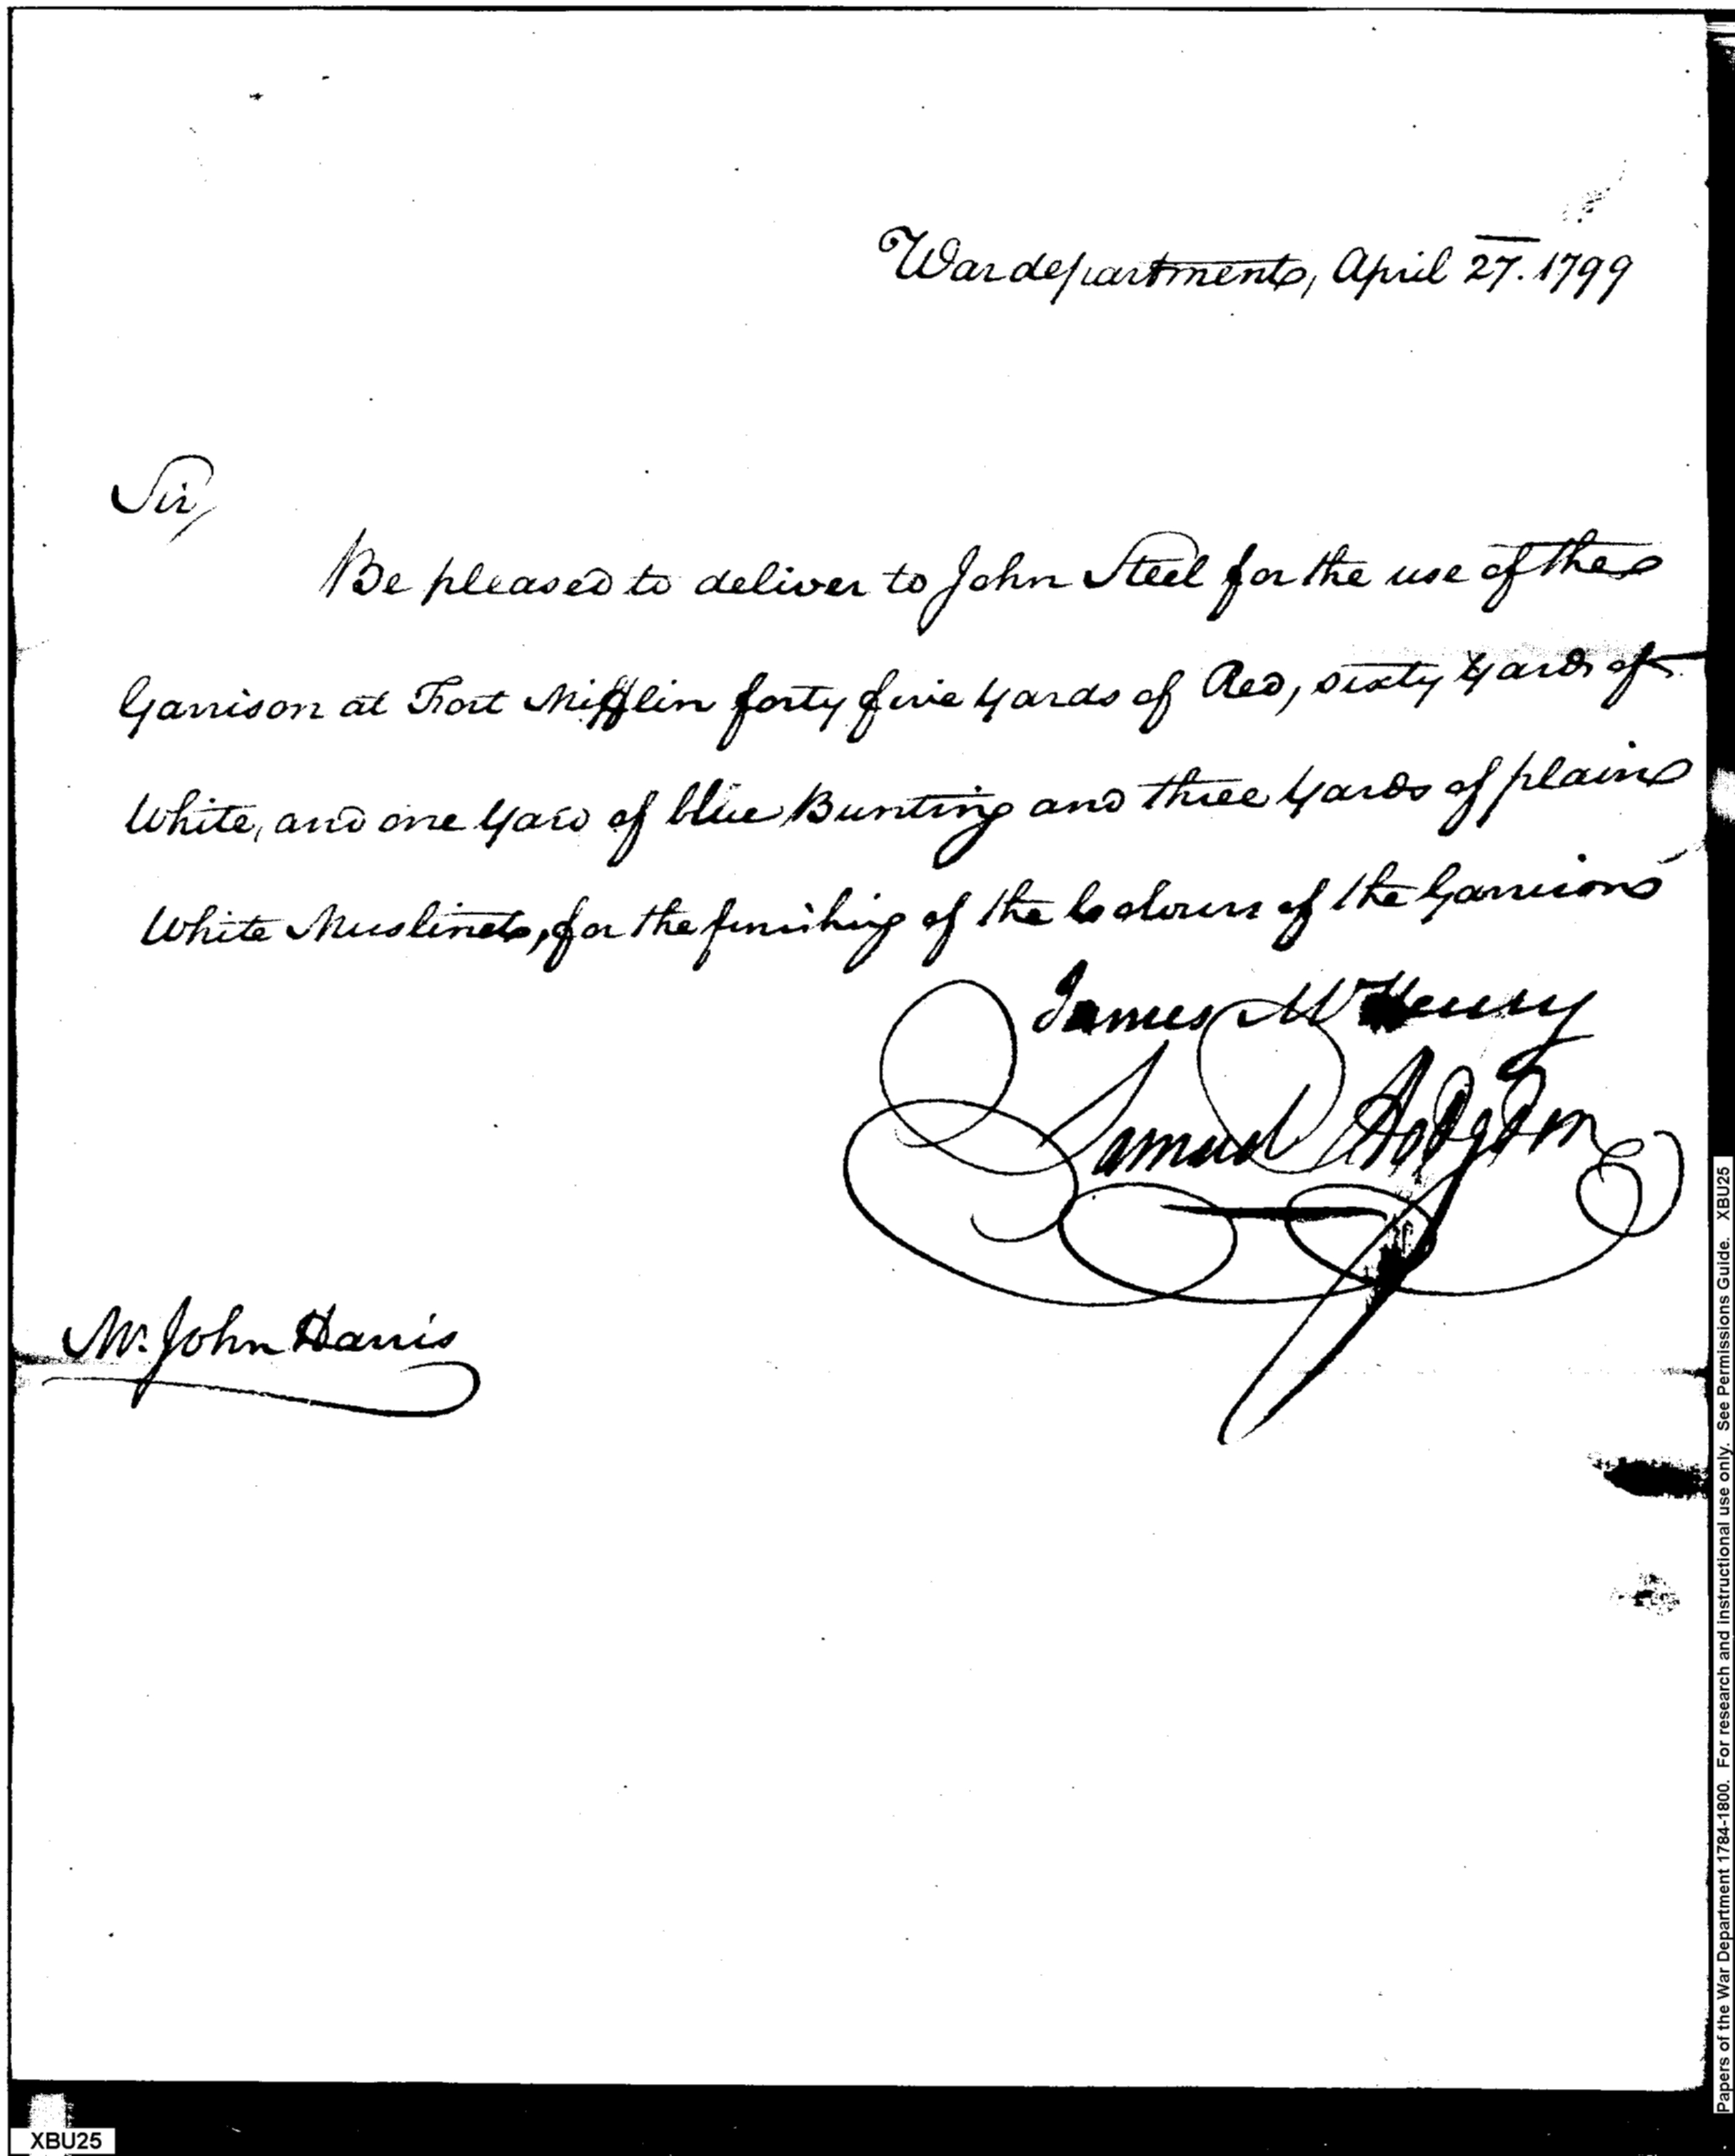 War department, April 27. 1799
Sir,
Be pleased to deliver to John Steel for the use of the
Garrison at Fort Mifflin forty five yards of Red, sixty yards of
White, and one yard of blue Bunting and three yards of plain
White Muslinet, for the finishing of the Colours of the Garrison
James McHenry
Samuel Hodgdon
Mr. John Harris
XBU25
Papers of the War Department 1784-1800. For research and instructional use only. See Permissions Guide. XBU25